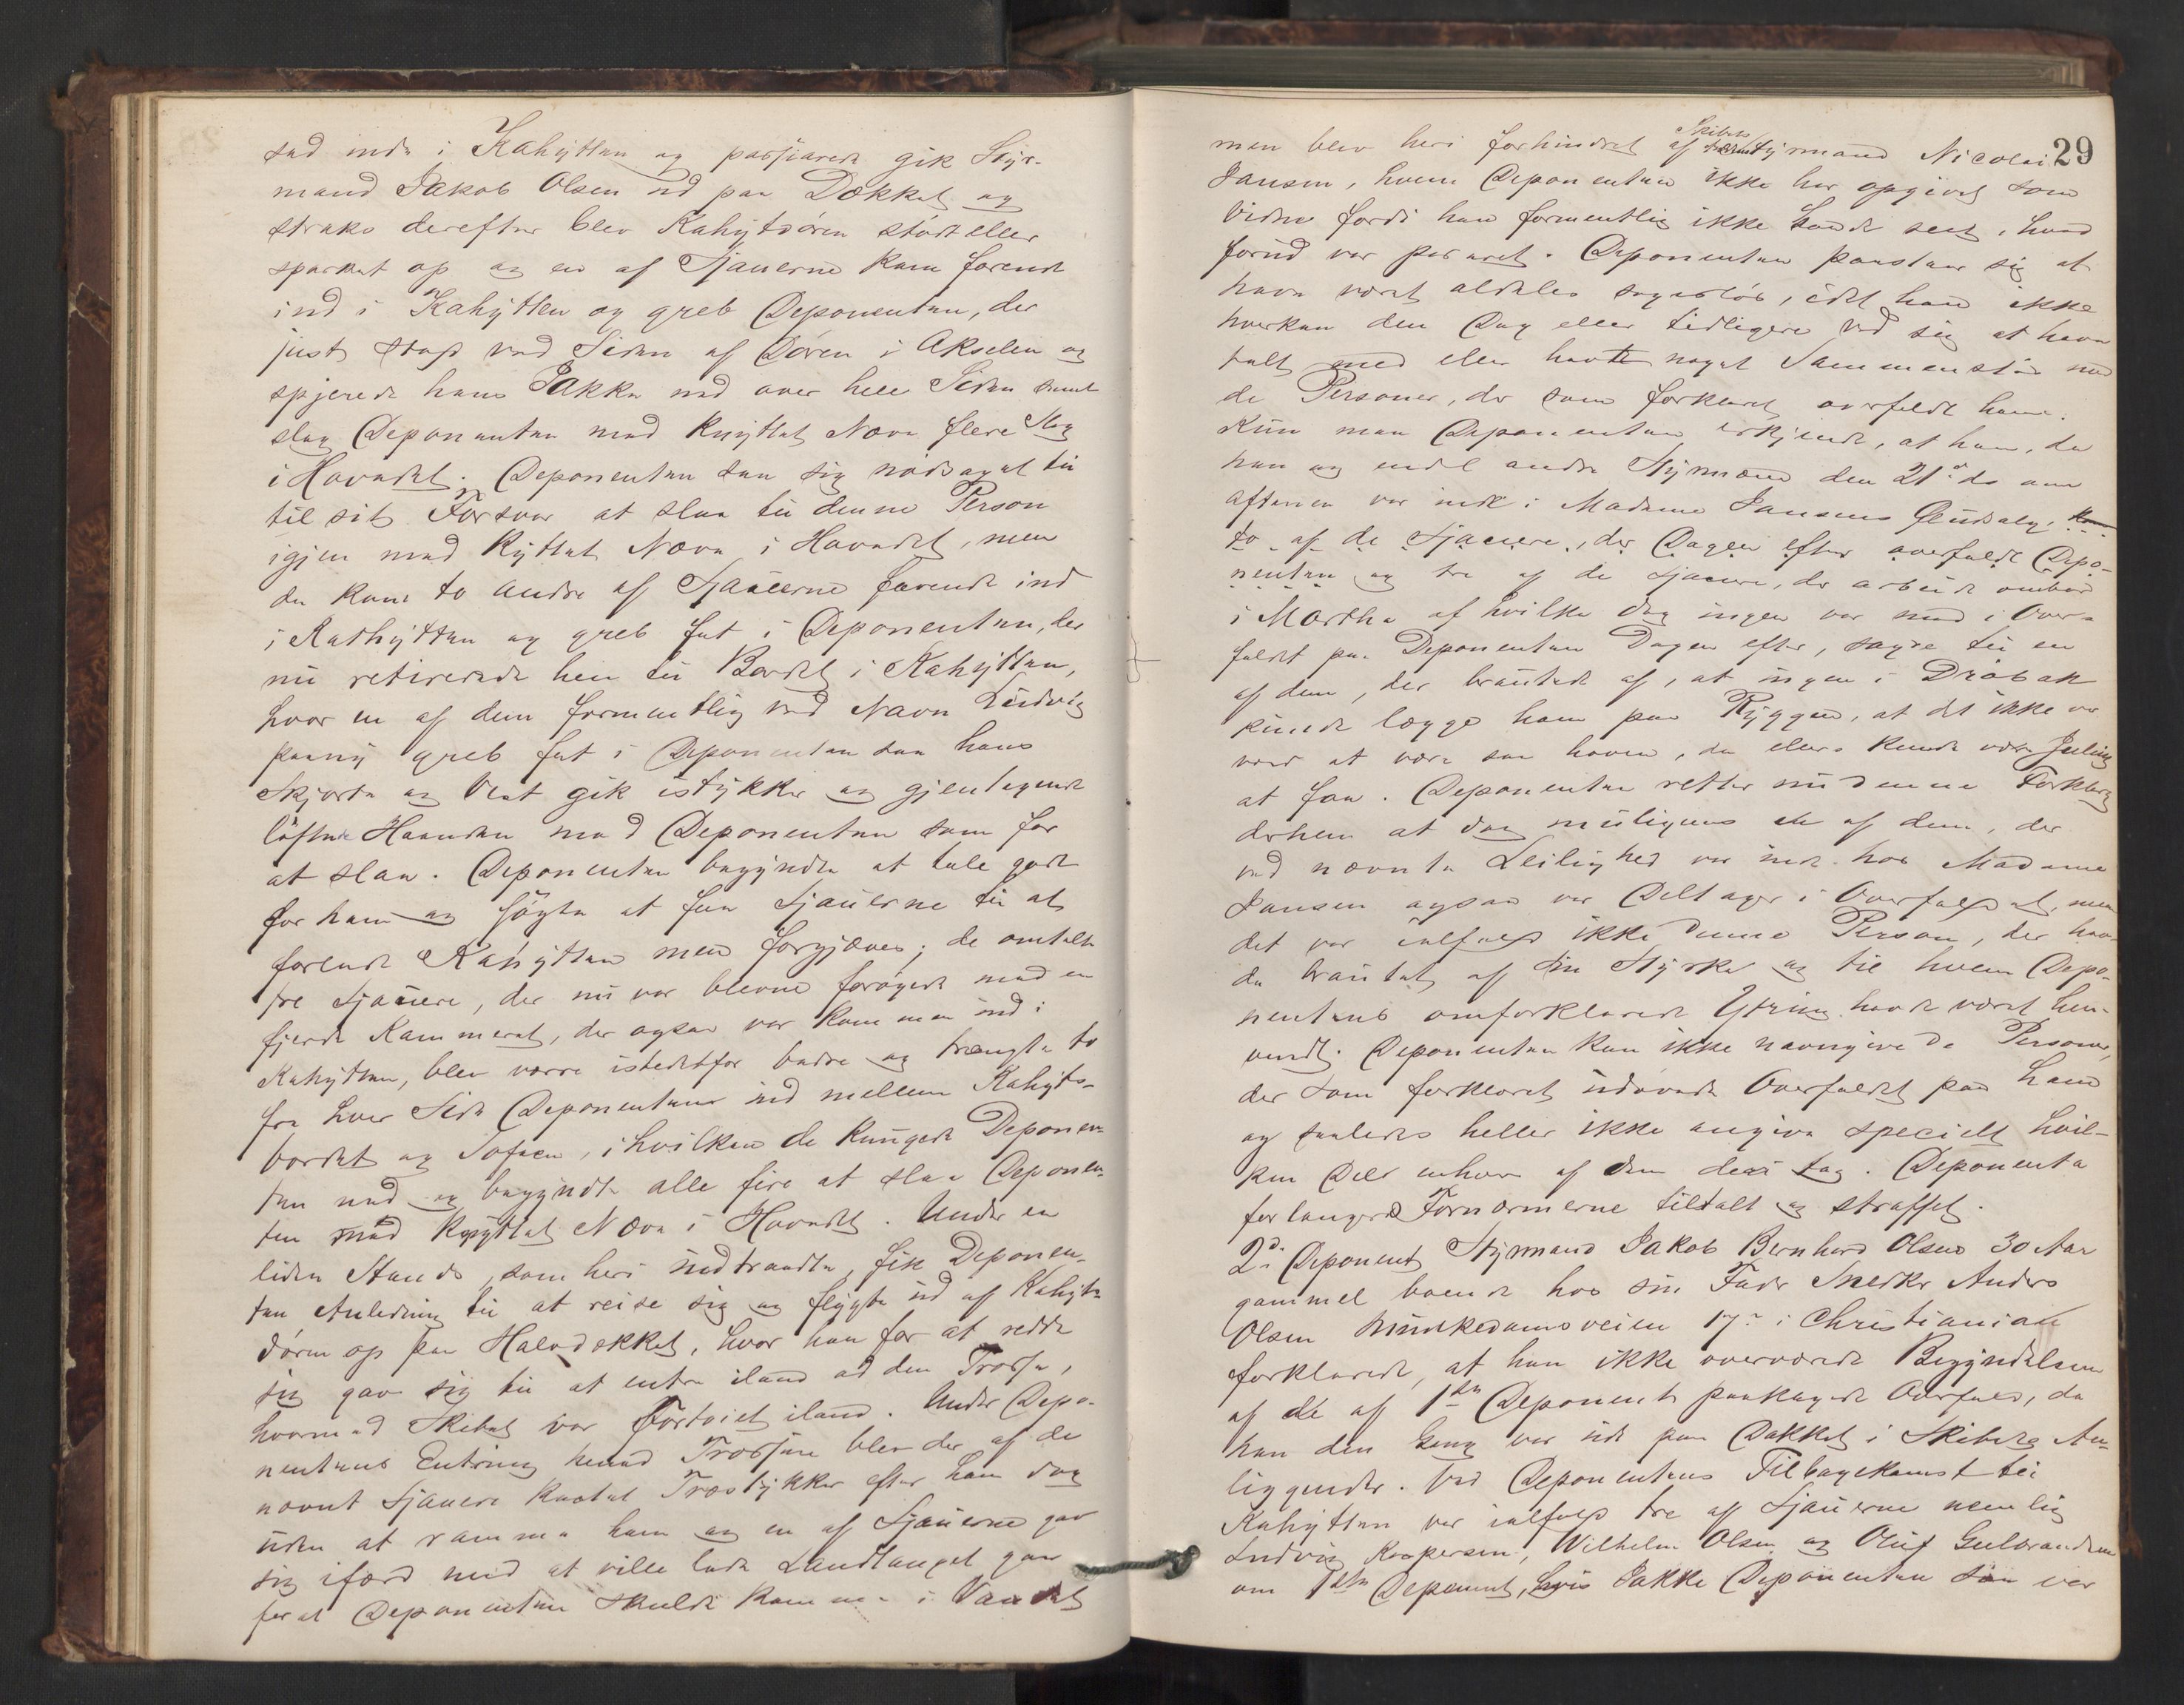 sad inde i Kahytten og passiarede gik Styr-
mand Jakob Olsen ud paa Dækket og
straks derefter blev Kahytsdøren stødt eller
sparket op og en af Sjauerne kom farende
ind i Kahytten og greb Deponenten, der
just stod ved Siden af Døren i Akselen og
spjerede hans Jakke ned over hele Siden samt
slog Deponenten med knyttet Næve flere Slag
i Hovedet. Deponenten saa sig nødsaget til
til sit Forsvar at slaa til denne Person
igjen med knyttet Næve i Hovedet, men
da kom to andre af Sjauerne farende ind
i Kathytten og greb fat i Deponenten, der
nu retirerede hen til Bordet i Kahytten,
hvor en af dem formentlig ved Navn Ludvig
paany greb fat i Deponenten saa hans
Skjorte og Vest gik istykker og gjentagende
løftede Haanden mod Deponenten som for
at slaa. Deponenten begyndte at tale godt
for ham og søgte at faa Sjauerne til at
forlade Kahytten men forgjæves; de omtalte
tre Sjauere, der nu var blevne forøgede med en
fjerde Kammerat, der ogsaa var kommen ind i
Kahytten, blev værre istedetfor bedre og trængte to
fra hver Side Deponenten ind mellem Kahyts-
bordet og Sofaen, i hvilken de kungede Deponen-
ten ned og begyndte alle fire at slaa Deponen-
ten med knyttet Næve i Hovedet. Under en
liden Stands, som heri indtraadte, fik Deponen-
ten Anledning til at reise sig og flygte ud af Kahyts-
døren op paa Halvdækket, hvor han for at redde
sig gav sig til at entre iland ad den Trosse,
hvormed Skibet var fortøiet iland. Under Depo-
nentens Entring henad Trossen blev der af de
nævnt Sjauere kastet Træstykker efter ham dog
uden at ramme ham og en af Sjauerne gav
sig ifærd med at ville lade Landtauget gaa
for at Deponenten skulde komme i Vandet
29
men blev heri forhindret af Skibets Styrmand Nicolai
Jansen, hvem Deponenten ikke har opgivet som
Vidne fordi han formentlig ikke havde seet, hvad
forud var passeret. Deponenten paastaar sig at
have været aldeles sagesløs, idet han ikke
hverken den Dag eller tidligere ved sig at have
talt med eller havt noget Sammenstød med
de Personer, der som forklaret overfaldt ham.
Kun maa Deponenten erkjende, at han, da
han og endel andre Styrmænd den 21de ds om
aftenen var inde i Madame Jansens Øludsalg,
to af de Sjauere, der Dagen efter overfaldt Depo-
nenten og tre af de Sjauere, der arbeide ombord
i Martha af hvilke dog ingen var med i Over-
faldet paa Deponenten Dagen efter, sagde til en
af dem, der brautede af, at ingen i Drøbak
kunde lægge ham paa Ryggen, at det ikke var
værd at være saa hoven, da ellers kunde være Juling
at faa. Deponenten retter nu denne Forklaring
derhen at dog muligens en af dem, der
ved nævnte Leilighed var inde hos Madame
Jansen ogsaa var Deltager i Overfaldet, men
det var ialfald ikke denne Person, der hav-
de brautet af sin Styrke og til hvem Depo-
nentens omforklarede Ytring havde været hen-
vendt. Deponenten kan ikke navngive de Personer,
der som forklaret udøvede Overfaldet paa ham
og saaledes heller ikke angive specielt hvil-
ken Del enhver af dem deri tog. Deponenten
forlangede Fornærmerne tiltalt og straffet.
2d Deponent Styrmand Jakob Bernhard Olsen 30 Aar
gammel boende hos sin Fader Snedker Anders
Olsen Munkedamsveien 17 i Christiania
forklarede, at han ikke overværede Begyndelsen
af det af 1ste Deponent paaklagede Overfald, da
han den Gang var ude paa Dækket i Skibets An-
liggender. Ved Deponentens Tilbagekomst til
Kahytten var ialfald tre af Sjauerne nemlig
Ludvig Kaspersen, Wilhelm Olsen og Oluf Gulbrandsen
om 1ste Deponent, hvis Jakke Deponenten saa var